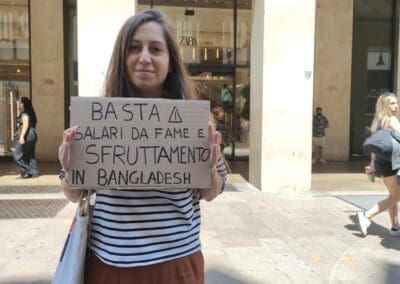 ZARA
BASTA ⚠
SALARI DA FAME E
SFRUTTAMENTO
IN BANGLADESH